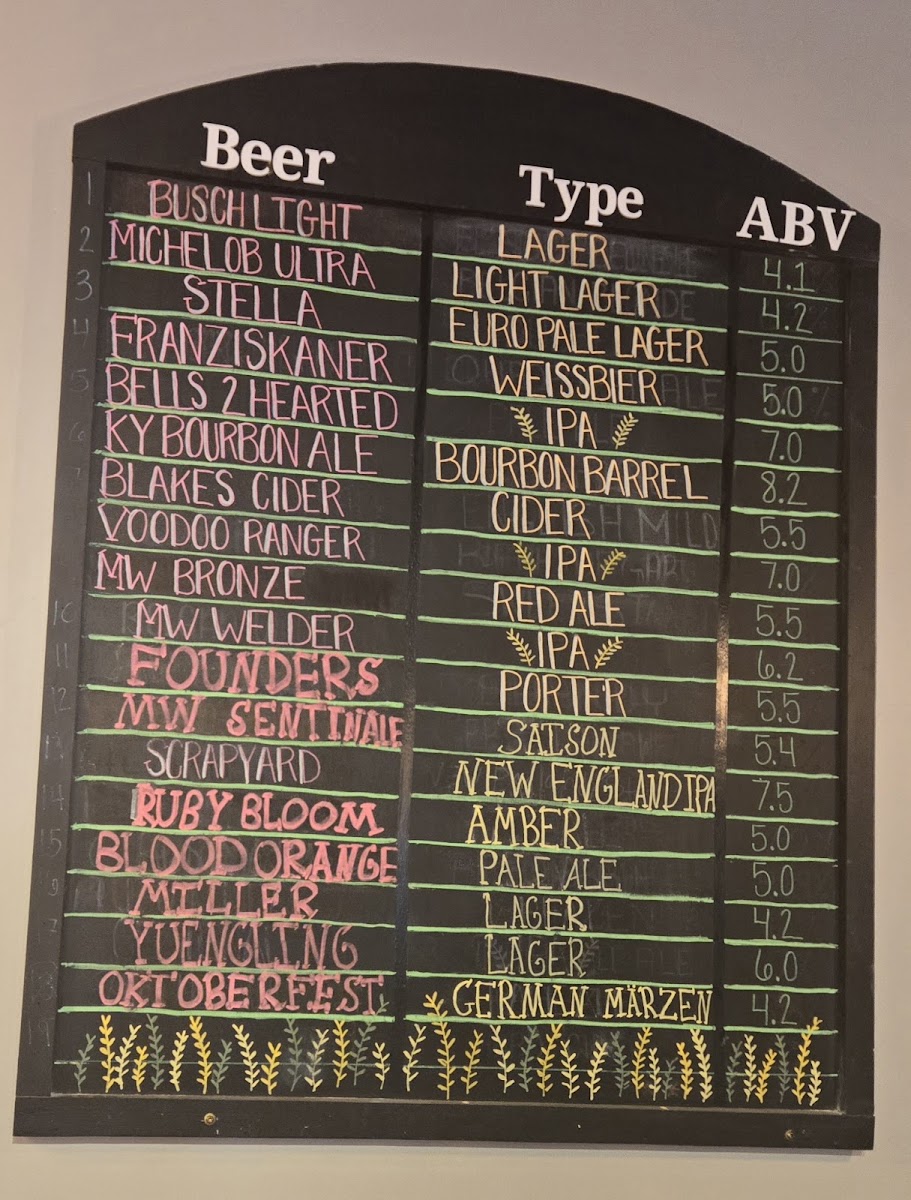 Beer Type ABV
1 BUSCH LIGHT LAGER 4.1
2 MICHELOB ULTRA LIGHT LAGER 4.2
3 STELLA EURO PALE LAGER 5.0
4 FRANZISKANER WEISSBIER 5.0
5 BELLS 2 HEARTED IPA 7.0
6 KY BOURBON ALE BOURBON BARREL 8.2
7 BLAKES CIDER CIDER 5.5
VOODOO RANGER IPA 7.0
MW BRONZE RED ALE 5.5
10 MW WELDER IPA 6.2
11 FOUNDERS PORTER 5.5
12 MW SENTINALE SAISON 5.4
SCRAPYARD NEW ENGLAND IPA 7.5
14 RUBY BLOOM AMBER 5.0
15 BLOOD ORANGE PALE ALE 5.0
MILLER LAGER 4.2
YUENGLING LAGER 6.0
OKTOBERFEST GERMAN MÄRZEN 4.2